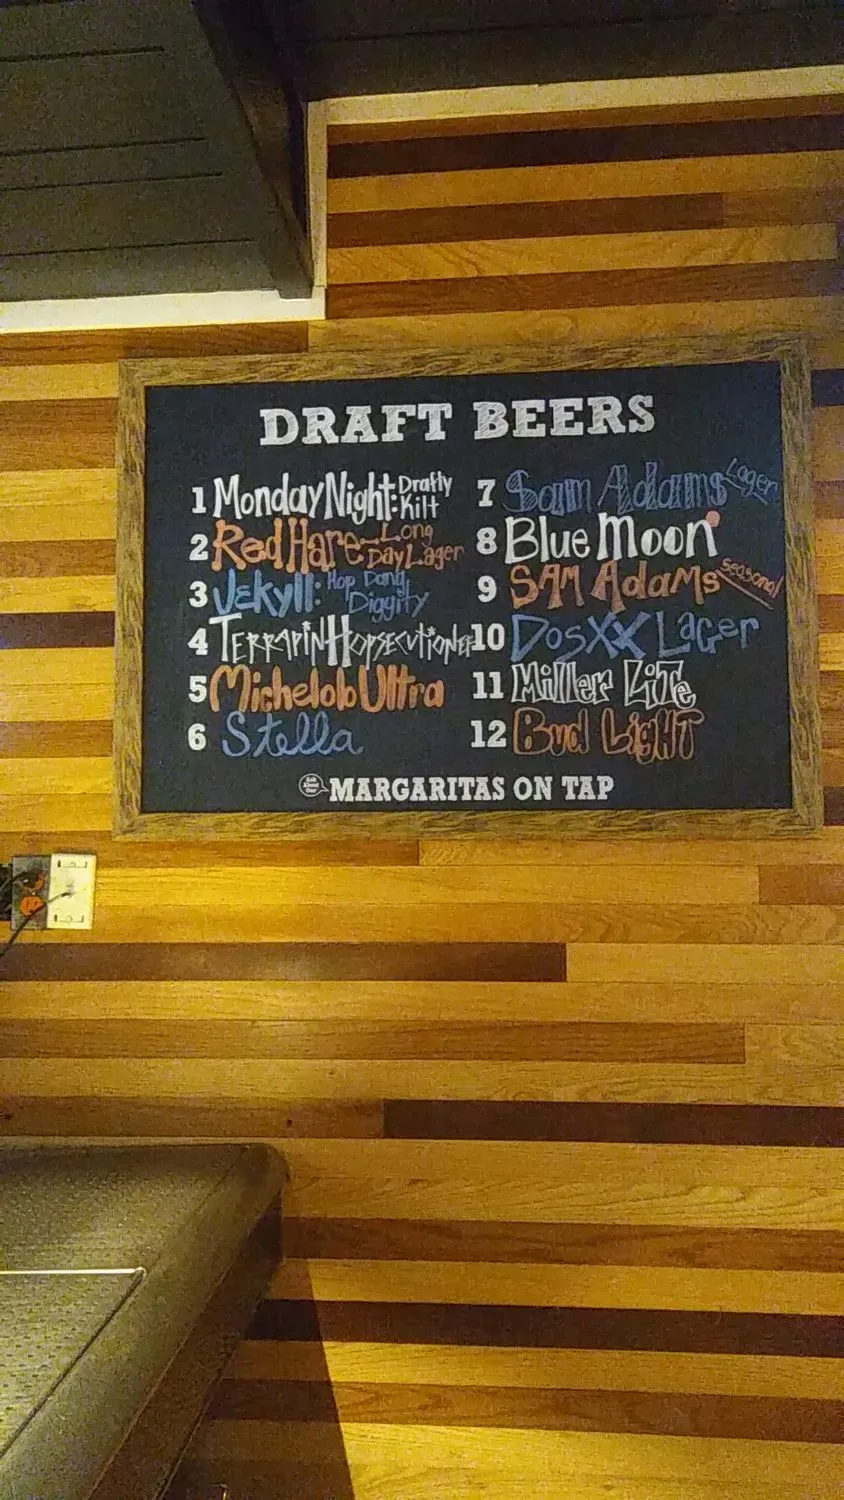 DRAFT BEERS
1 Monday Night: Drafty Kilt
2 Red Hare- Long Day Lager
3 Jekyll: Hop Dang Diggity
4 Terrapin Hopsecutioner
5 Michelob Ultra
6 Stella
7 Sam Adams Lager
8 Blue Moon
9 SAM AdAMs seasonal
10 DosXX Lager
11 Miller LiTe
12 Bud LigHT
Ask About Our MARGARITAS ON TAP